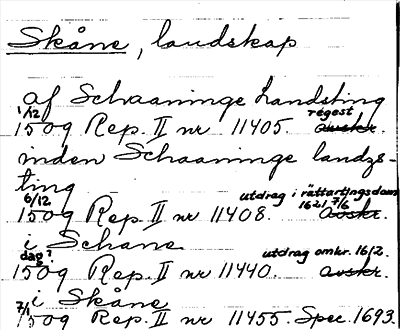 Skåne, landskap
af Schaaninge Landsting
1/12 regest
1509 Rep. II nr 11405. avskr.
inden Schaaninge landzs-
ting
6/12 utdrag i rättartingsdom
1621 7/6
1509 Rep. II nr 11408. avskr.
i Schane
dag? utdrag omkr. 1612.
1509 Rep. II nr 11440. avskr.
i Skåne
7/1
1509 Rep. II nr 11455. Spec. 1693.